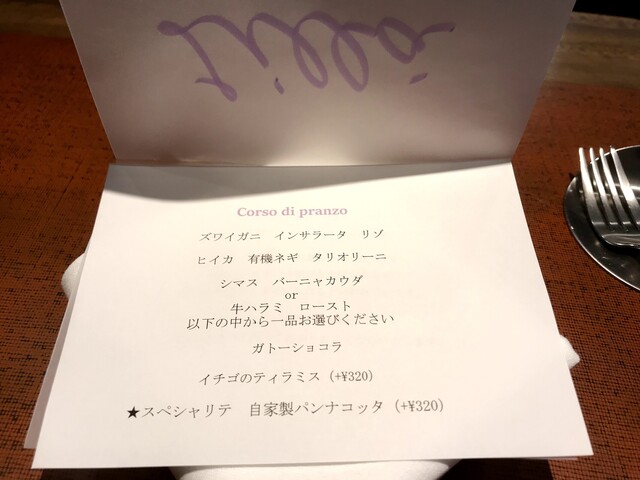 Lilla
Corso di pranzo
ズワイガニ　インサラータ　リゾ
ヒイカ　有機ネギ　タリオリーニ
シマス　バーニャカウダ
or
牛ハラミ　ロースト
以下の中から一品お選びください
ガトーショコラ
イチゴのティラミス（+¥320）
★スペシャリテ　自家製パンナコッタ（+¥320）